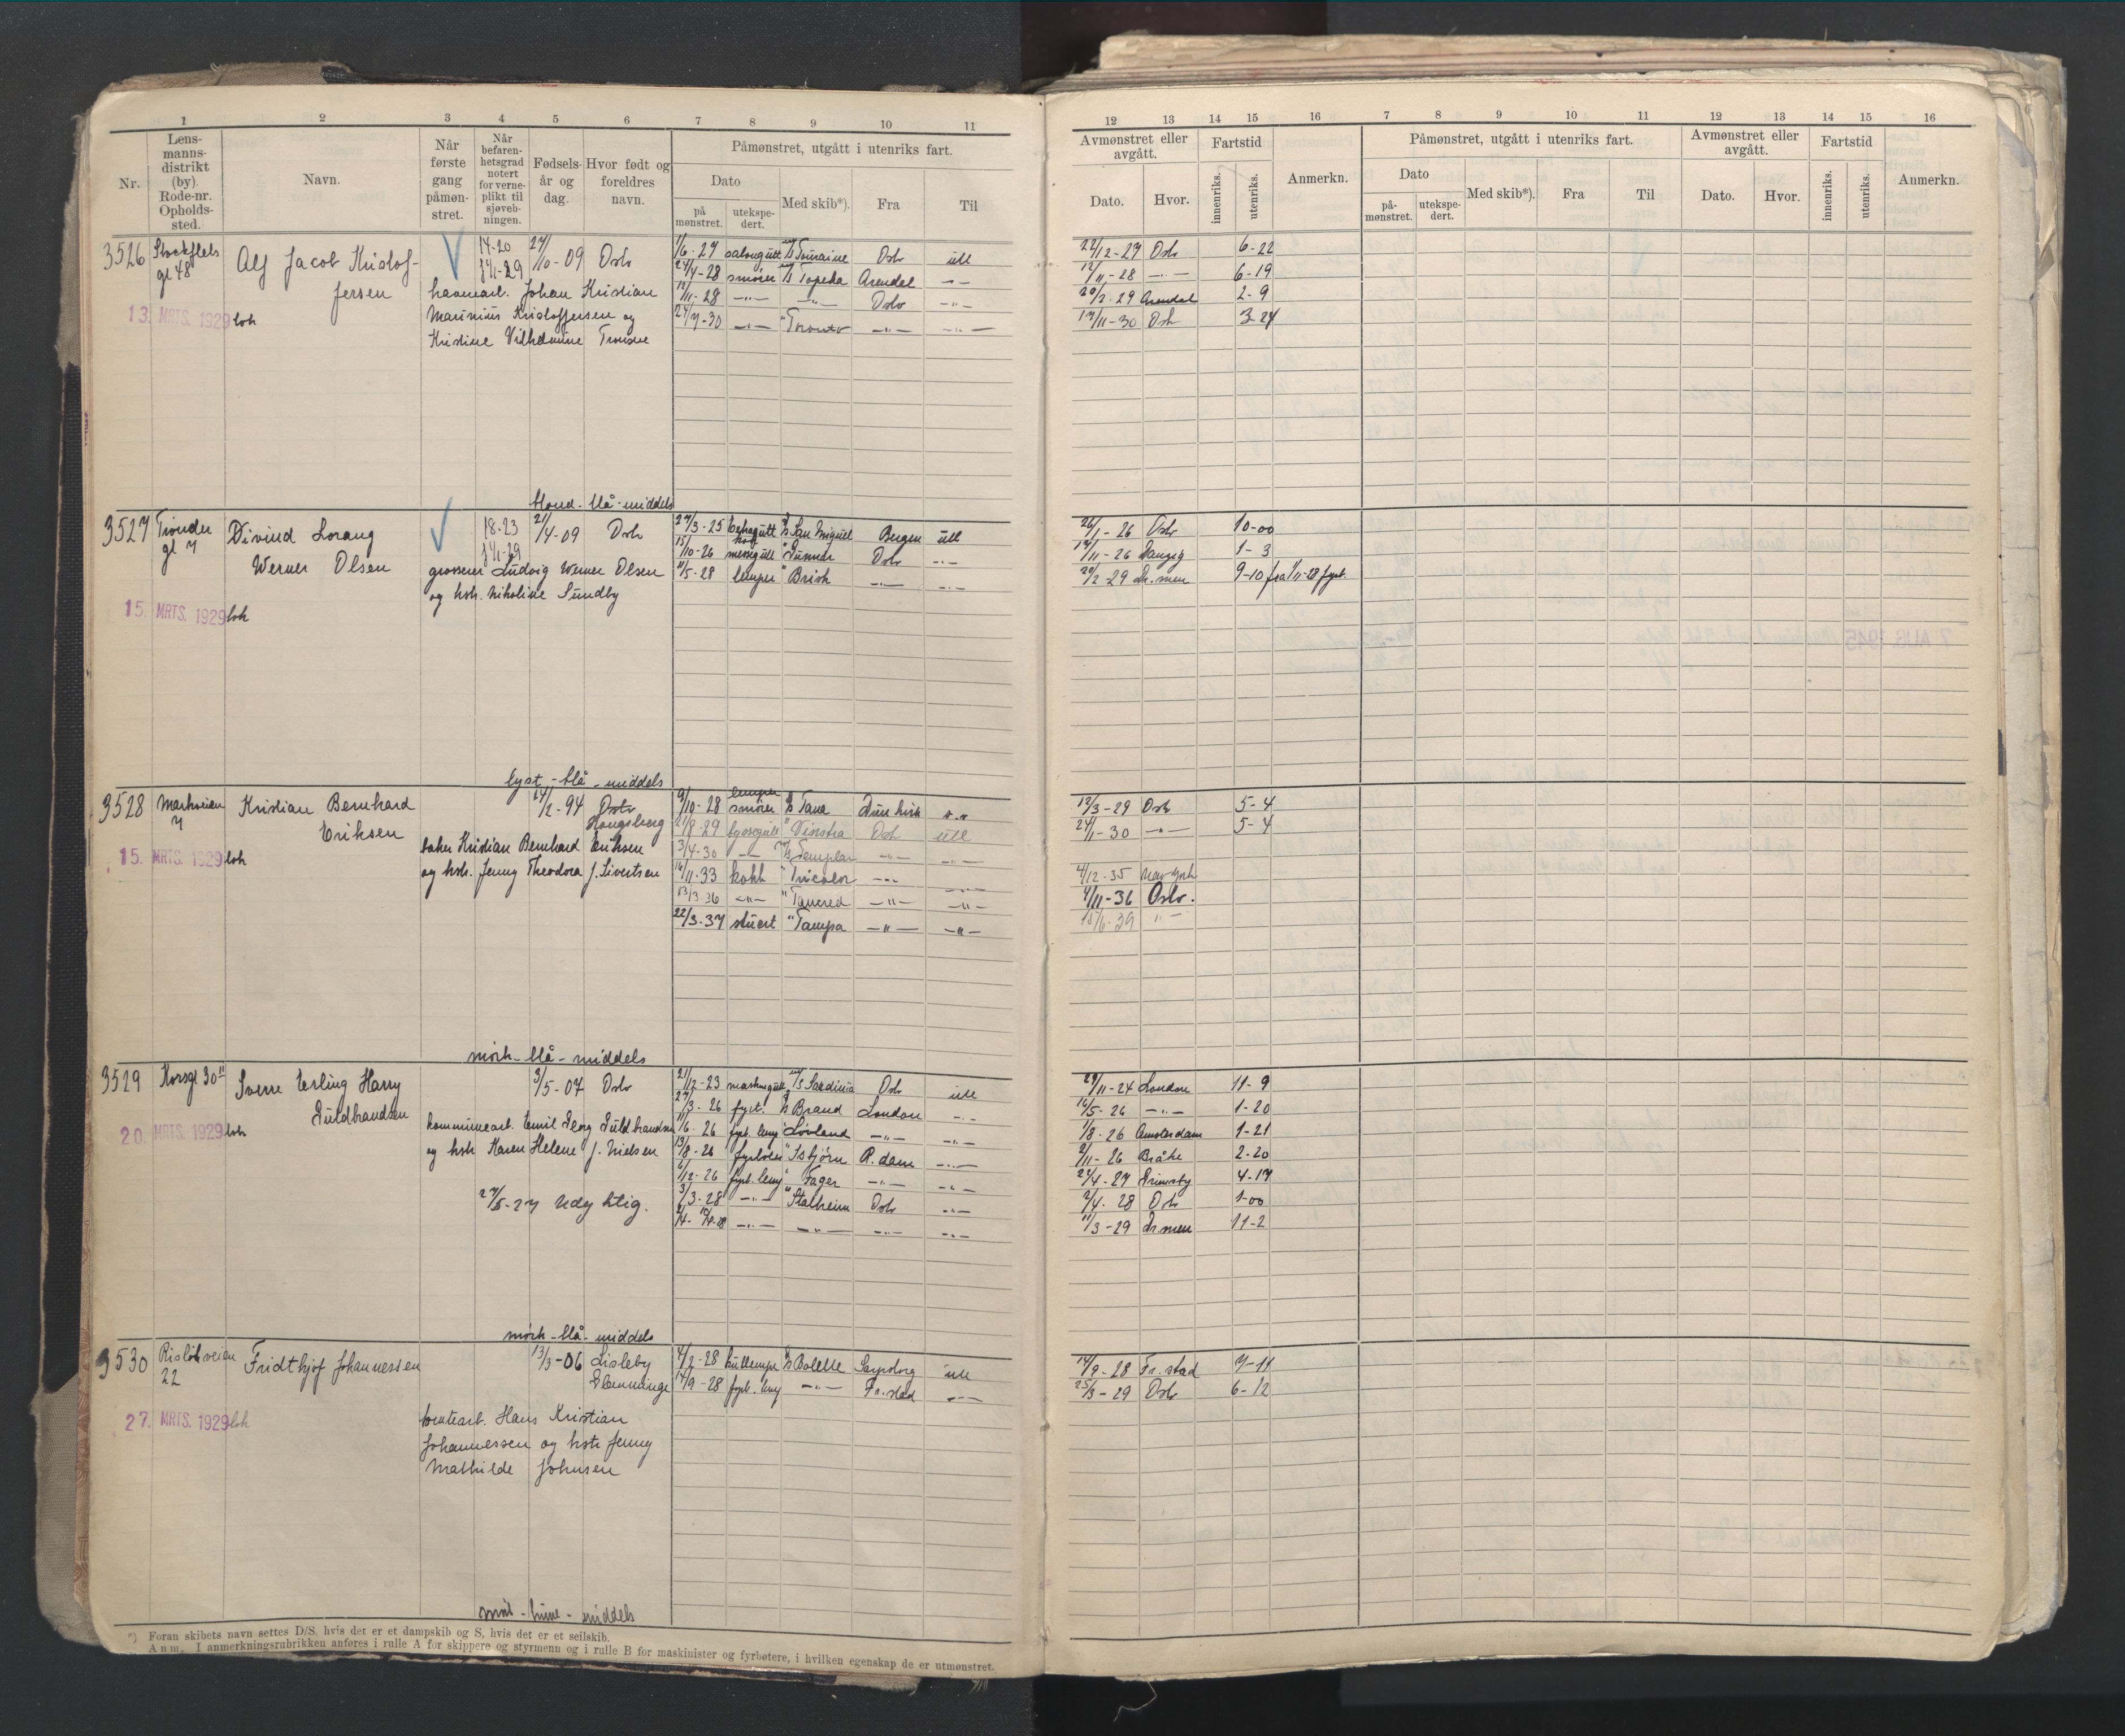 1 2 3 4 5 6 7 8 9 10 11
Nr. Lens-manns-distrikt (by). Rode-nr. Opholds-sted. Navn. Når første gang påmøn-stret. Når befaren-hetsgrad notert for verne-plikt til sjøveb-ningen. Fødsels-år og dag. Hvor født og foreldres navn. Påmønstret, utgått i utenriks fart.
Dato Med skib*). Fra Til
på mønstret. utekspe-dert.
3526 Stockflets gt 48 Alf Jacob Kristof- 14-20 27/10-09 Oslo 1/6-27 salongutt M/S Touraine Oslo utl
fersen 1/1-29 24/4-28 smører M/S Topeka Arendal -"-
havnearb. Johan Kristian 12/11-28 -"- -"- Oslo -"-
13. MRTS. 1929 loh Marinius Kristoffersen og 24/7-30 -"- " Toronto -"- -"-
Kristine Vilhelmine Tronsen
blond - blå - middels
3527 Trondu gt 7 Øivind Lorang 18-23 21/4-09 Oslo 27/3-25 S/S San Miguel Bergen utl
Werner Olsen 1/1-29 15/10-26 messegutt " Gunnar Oslo -"-
grosserer Ludvig Werner Olsen 11/5-28 lemper " Brish -"- -"-
og hstr. Nikoline Sundby
15. MRTS. 1929 loh
lyst - blå - middels
3528 Markveien 7 Kristian Bernhard 14/2-94 Oslo 9/10-28 lemper smører S/S Tana Dunkirk -"-
Eriksen Kongsberg 21/8-29 byssegutt " Vinstra Oslo utl
15. MRTS. 1929 loh baker Kristian Bernhard Eriksen 3/4-30 -"- M/S Templar -"- -"-
og hstr. Jenny Theodora f. Sivertsen 16/11-33 kokk " Tricolor -"- -"-
13/3-36 -"- " Tancred -"- -"-
22/3-37 stuert " Tampa -"- -"-
mørk - blå - middels
3529 Korsgt 30 II Sverre Erling Harry 3/5-07 Oslo 21/12-23 maskingutt M/S Sardinia Oslo utl
Guldbrandsen 27/3-26 fyrb. S/S Brand London -"-
20. MRTS. 1929 loh kommunearb. Emil Georg Guldbrandsen 11/6-26 fyrb. lemp " Løvland -"- -"-
og hstr Karen Helene f. Nielsen 13/8-26 fyrbøter " Isbjørn R.dam -"-
6/12-26 fyrb. lemp " Fager -"- -"-
27/5-27 udyktig. 3/3-28 -"- " Stalheim Oslo -"-
-"- -"- -"- -"-
mørk - blå - middels
3530 Risløkveien 22 Fridthjof Johannessen 13/3-06 Lisleby Glemminge 4/2-28 kullemper S/S Bolette Sarpsborg utl
14/9-28 fyrb. lemp -"- Fr.stad -"-
27. MRTS. 1929 loh tomtearb. Hans Kristian
Johannessen og hstr Jenny
Mathilde Johnsen
- middels
*) Foran skibets navn settes D/S, hvis det er et dampskib og S, hvis det er et seilskib.
Anm. I anmerkningsrubrikken anføres i rulle A for skippere og styrmenn og i rulle B for maskinister og fyrbøtere, i hvilken egenskap de er utmønstret.
12 13 14 15 16 7 8 9 10 11 12 13 14 15 16
Avmønstret eller avgått. Fartstid Anmerkn. Påmønstret, utgått i utenriks fart. Avmønstret eller avgått. Fartstid Anmerkn.
Dato. Hvor. innenriks. utenriks. Dato på-mønstret. utekspe-dert. Med skib*). Fra Til Dato. Hvor. innenriks. utenriks.
22/12-27 Oslo 6-22
12/11-28 -"- 6-19
20/2-29 Arendal 2-9
17/11-30 Oslo 3-24
26/1-26 Oslo 10-00
17/11-26 Danzig 1-3
20/2-29 Dr.men 9-10 fra 1/11-28 fyrb.
12/3-29 Oslo 5-4
24/1-30 -"- 5-4
4/12-35 New York
7/11-36 Oslo.
15/6-39 "
29/11-24 London 11-9
16/5-26 -"- 1-20
1/8-26 Amsterdam 1-21
2/11-26 Bråke 2-20
22/4-27 Grimsby 4-17
2/4-28 Oslo 1-00
11/3-29 Dr.men 11-2
14/9-28 Fr.stad 7-11
25/3-29 Oslo 6-12